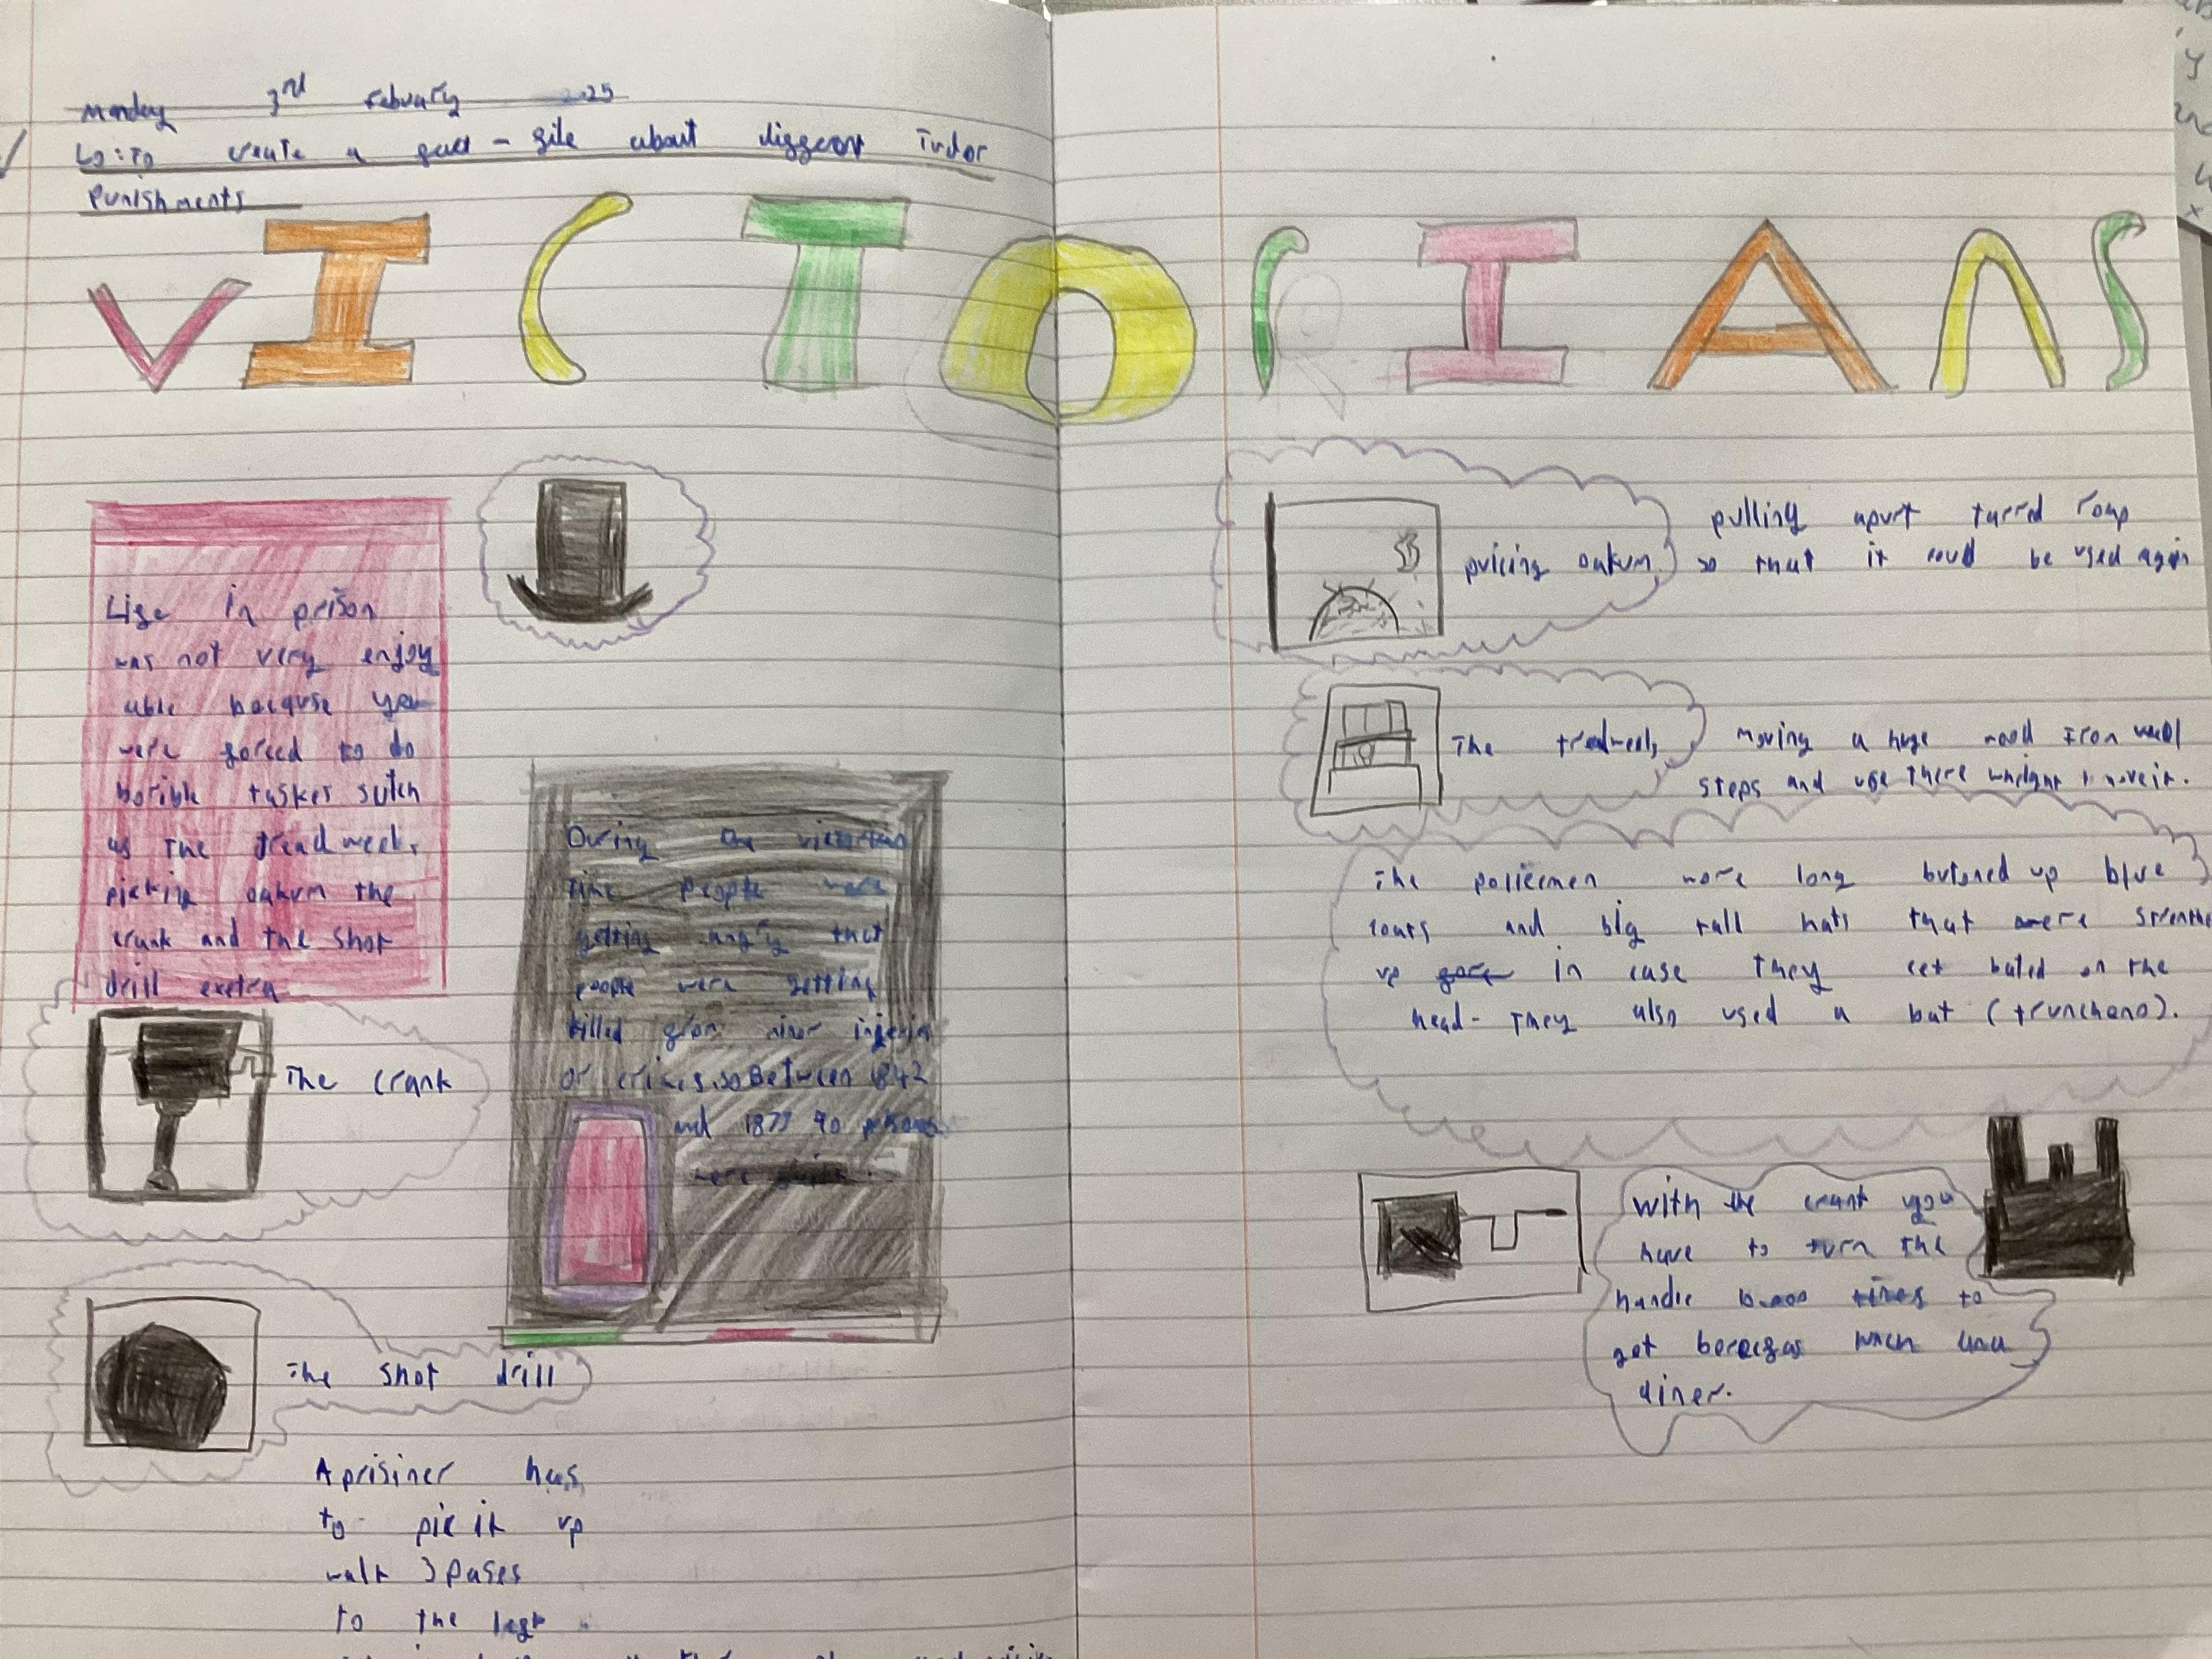 Monday 3rd Febuary 2025
Lo: To create a fact-file about diffeent Tudor
Punishments
VICTORIANS
Life in prison
was not very enjoy
able because you
were forced to do
horible taskes sutch
as The treadweel,
picking oakum the
crank and the shot
drill exetra
The crank
The shot drill
A prisiner has
to pic it up
walk 3 pases
to the left
During the victorian
time people were
getting angry that
people were getting
killed from minor
or crimes. so Between 1842
and 1877 90 prisons
were
picing oakum
pulling apart tarred roap
so that it coud be used again
The treadweel,
moving a huge Iron weel
steps and use there move it.
The policemen wore long butoned up blue
coats and big tall hats that were
up in case They get bated on the
head. They also used a bat (trunchano).
with the crank you
have to turn the
handle 10.000 times to
get
diner.